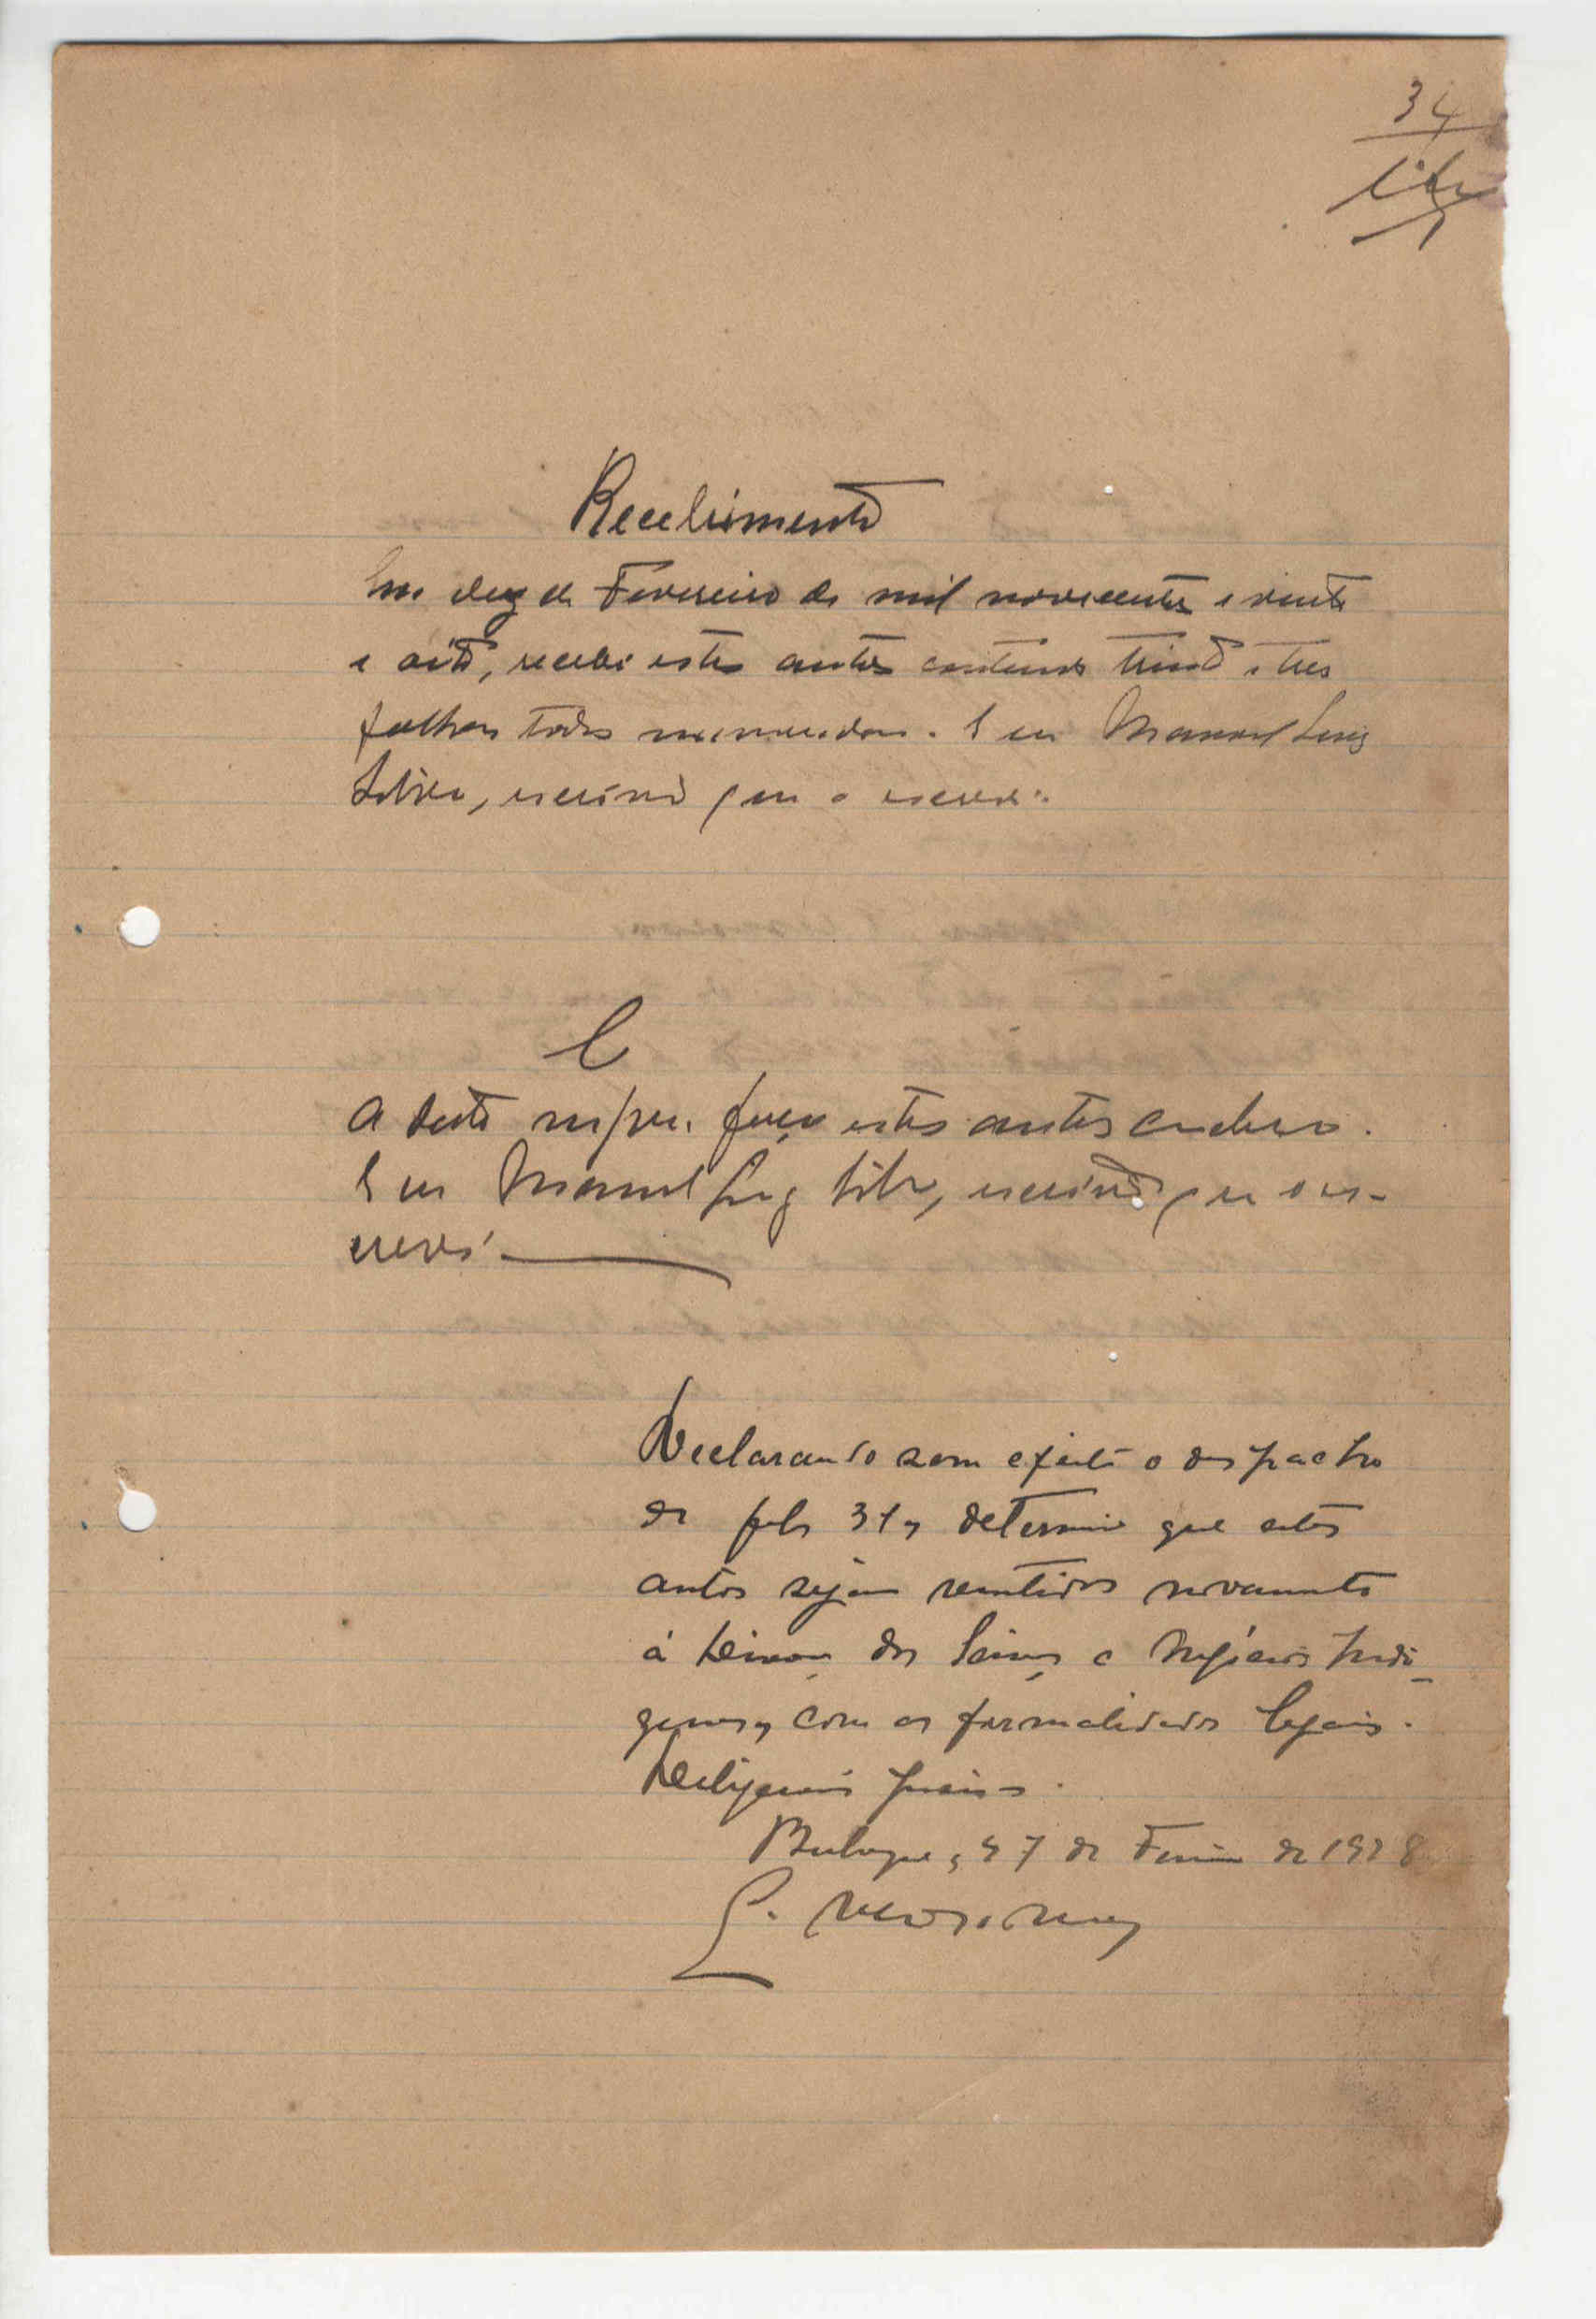 34
Recebimento
Em dez de Fevereiro de mil novecentos e vinte
e oito, recebi estes autos contendo trinta e tres
folhas todas numeradas. E eu Manoel Luiz
escrivão que o escrevi.
C
A data supra faço estes autos conclusos.
E eu Manoel Luiz escrivão que o es-
crevi
Declarando sem efeito o despacho
de fols 31, determino que estes
autos sejam remetidos novamente
á dos e Negócios Indi-
genas, com as formalidades legais.
de 1928